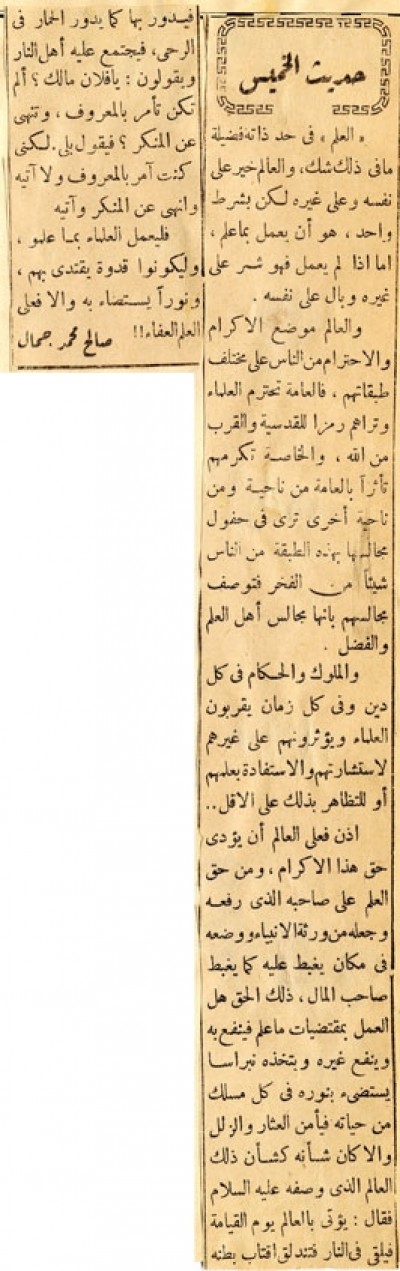 حديث الخميس
« العلم » فى حد ذاته فضيلة
مافى ذلك شك، والعالم خير على
نفسه وعلى غيره لكن بشرط
واحد ، هو أن يعمل بما علم ،
اما اذا لم يعمل فهو شر على
غيره وبال على نفسه .
والعالم موضع الاكرام
والاحترام من الناس على مختلف
طبقاتهم ، فالعامة تحترم العلماء
وتراهم رمزا للقدسية والقرب
من الله ، والخاصة تكرمهم
تأثراً بالعامة من ناحية ومن
ناحية أخرى ترى فى حفول
مجالسها بهذه الطبقة من الناس
شيئاً من الفخر فتوصف
مجالسهم بانها مجالس أهل العلم
والفضل .
والملوك والحكام فى كل
دين وفى كل زمان يقربون
العلماء ويؤثرونهم على غيرهم
لاستشارتهم والاستفادة بعلمهم
أو للتظاهر بذلك على الاقل ..
اذن فعلى العالم أن يؤدى
حق هذا الاكرام ، ومن حق
العلم على صاحبه الذى رفعه
وجعله من ورثة الانبياء ووضعه
فى مكان يغبط عليه كما يغبط
صاحب المال ، ذلك الحق هل
العمل بمقتضيات ما علم فينفع به
وينفع غيره ويتخذه نبراسا
يستضىء بنوره فى كل مسلك
من حياته فيأمن العثار والزلل
والا كان شأنه كشأن ذلك
العالم الذى وصفه عليه السلام
فقال : يؤتى بالعالم يوم القيامة
فيلقى فى النار فتندلق اقتاب بطنه
فيدور بها كما يدور الحمار فى
الرحى، فيجتمع عليه أهل النار
ويقولون : يافلان مالك ؟ ألم
تكن تأمر بالمعروف ، وتنهى
عن المنكر ؟ فيقول بلى. لكنى
كنت آمر بالمعروف ولا آتيه
وانهى عن المنكر وآتيه
فليعمل العلماء بما علمو ،
وليكونوا قدوة يقتدى بهم ،
ونوراً يستضاء به والا فعلى
العلم العفاء !! صالح محمد جمال